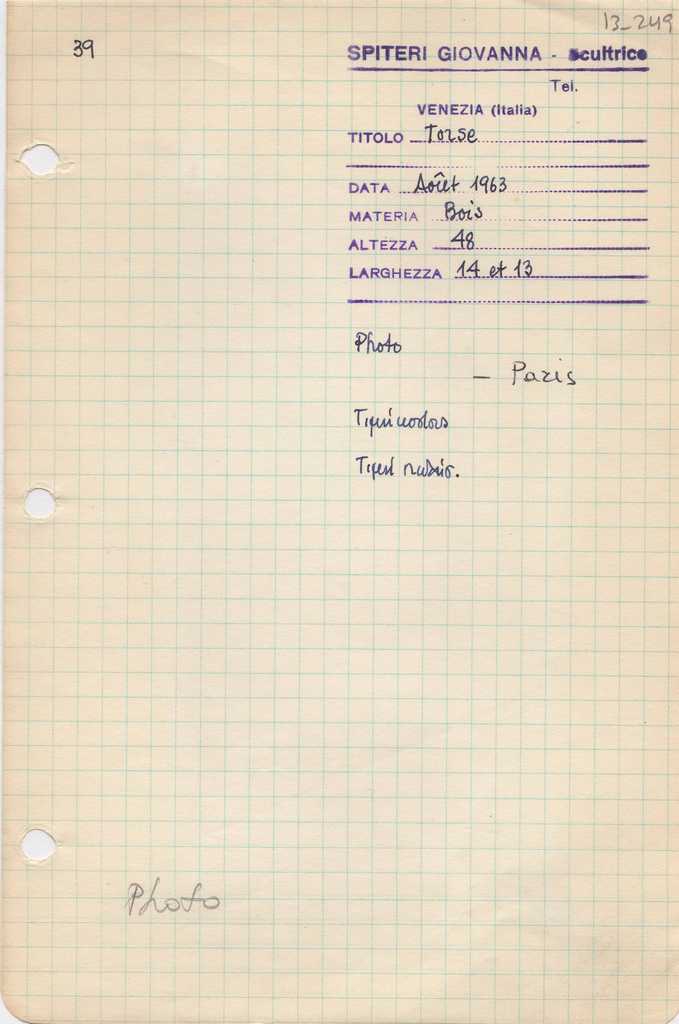 13_249
39
SPITERI GIOVANNA - scultrice
Tel.
VENEZIA (Italia)
TITOLO Torse
DATA Août 1963
MATERIA Bois
ALTEZZA 48
LARGHEZZA 14 et 13
Photo
- Paris
Τιμή κόστους
Τιμή
Photo